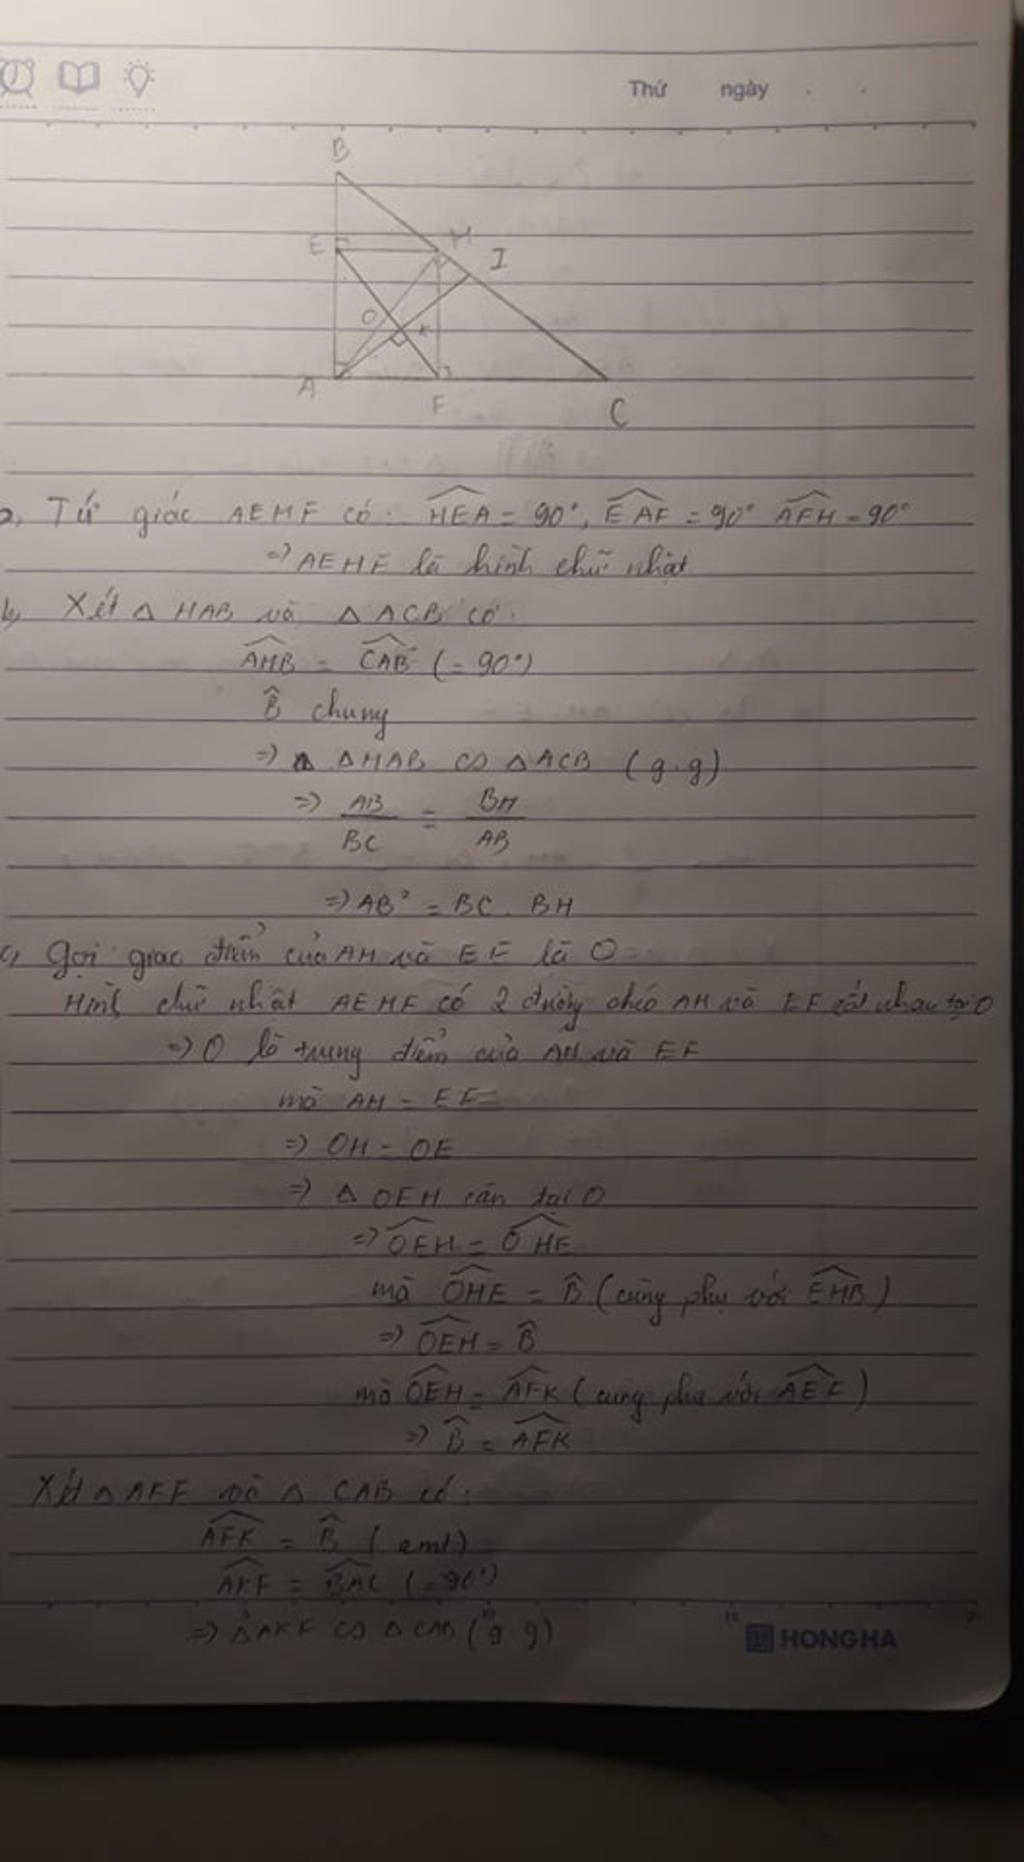 Thứ ngày
B
E H I
O K
A F C
a, Tứ giác AEHF có: HEA = 90°, EAF = 90° AFH = 90°
=> AEHF là hình chữ nhật
b, Xét △ HAB và △ ACB có:
AHB = CAB (= 90°)
B chung
=> △HAB ∽ △ACB (g.g)
=> AB/BC = BH/AB
=> AB² = BC . BH
c, Gọi giao điểm của AH và EF là O
Hình chữ nhật AEHF có 2 đường chéo AH và EF cắt nhau tại O
=> O là trung điểm của AH và EF
mà AH = EF
=> OH = OE
=> △ OEH cân tại O
=> OEH = OHE
mà OHE = B (cùng phụ với EHB)
=> OEH = B
mà OEH = AFK (cùng phụ với AEF)
=> B = AFK
Xét △ AKF và △ CAB có:
AFK = B (cmt)
AKF = BAC (= 90°)
=> △AKF ∽ △CAB (g.g)
HONG HA